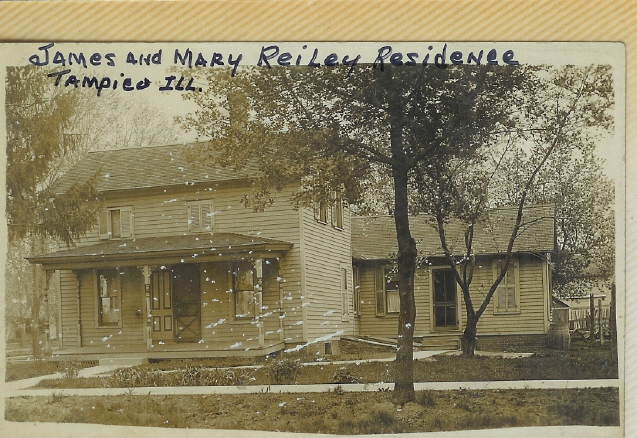 JAMES AND MARY REILEY RESIDENCE
TAMPICO ILL.